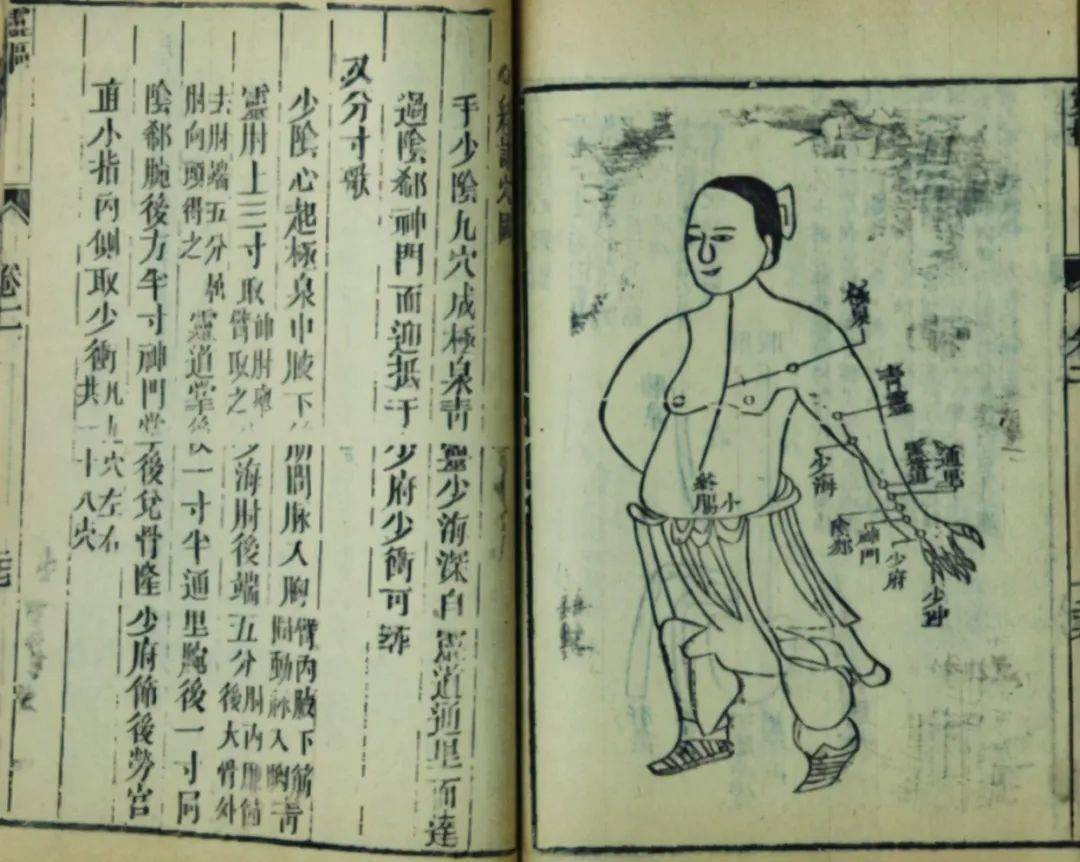 極泉
青靈
少海
靈道
通里
神門
少府
少冲
絡
小腸
手少陰九穴成極泉青靈少海深自靈道通里而達
過陰郄神門而迎抵于少府少衝可
又分寸歌
少陰心起極泉中腋下筋間脉入胸臂內腋下筋間動脉入胸青
靈肘上三寸取伸肘舉臂取之少海肘後端五分肘內廉節後大骨外
去肘端五分肘向頭得之靈道掌後一寸半通里腕後一寸同
陰郄腕後方半寸神門掌後兌骨隆少府節後勞宮
直小指內側取少衝凡九穴左右共一十八穴
靈樞
卷二